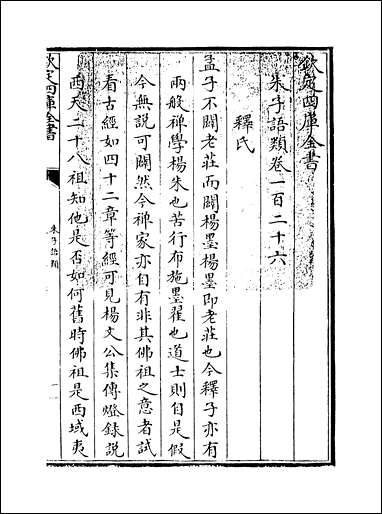 欽定四庫全書
朱子語類卷一百二十六
釋氏
孟子不闢老莊而闢楊墨楊墨即老莊也今釋子亦有
兩般禪學楊朱也苦行布施墨翟也道士則自是假
今無説可闢然今禅家亦自有非其佛祖之意者試
看古經如四十二章等經可見楊文公集傳燈録説
西天二十八祖知他是否如何舊時佛祖是西域夷
欽定四庫全書
朱子語類
一